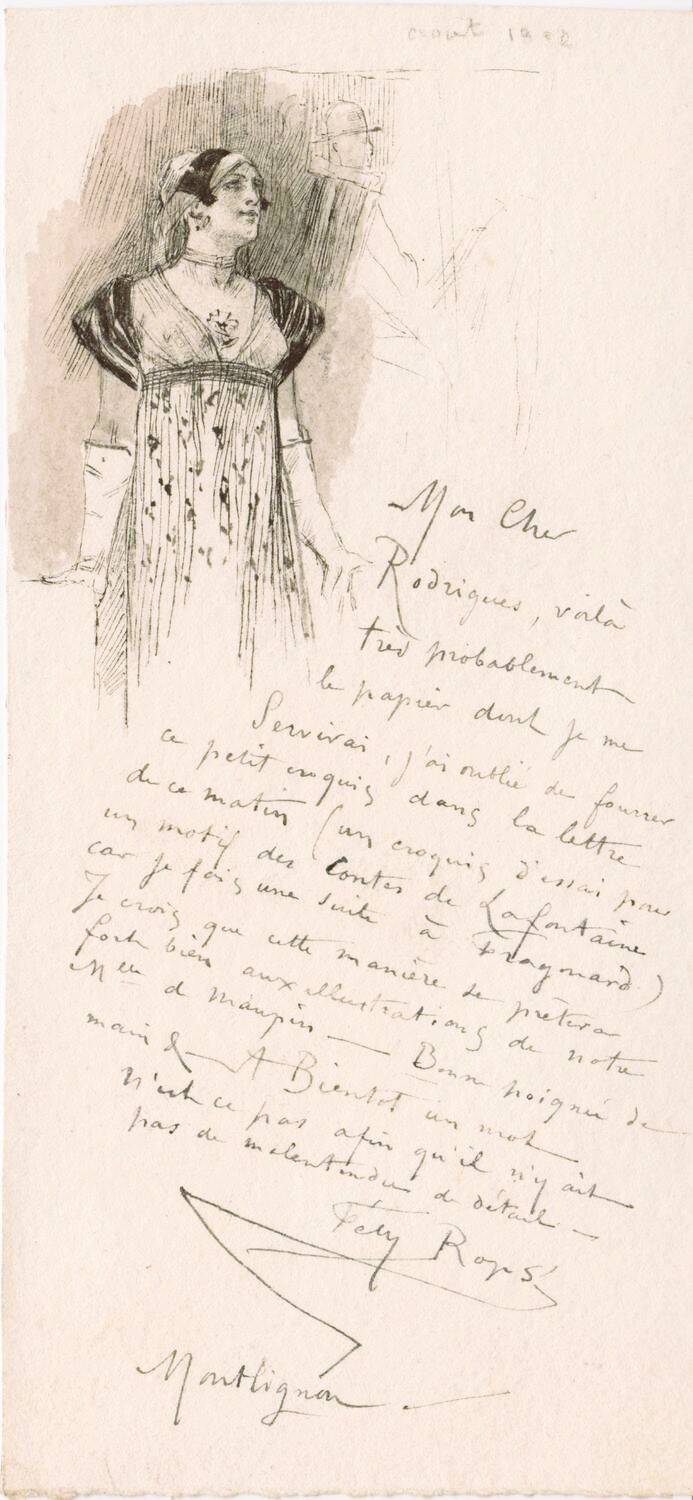 aout 188
Mon Cher
Rodrigues, voilà
très probablement
le papier dont je me
Servirai, j'ai oublié de fourrer
ce petit croquis dans la lettre
de ce matin (un croquis d'essai pour
un motif des Contes de Lafontaine
car je fais une suite à Fragonard)
Je crois que cette manière se prêtera
fort bien aux illustrations de notre
Melle de Maupin — Bonne poignée de
main & — A Bientot un mot
n'est ce pas afin qu'il n'y ait
pas de malentendu de détail —
Fély Rops
Montlignon . —